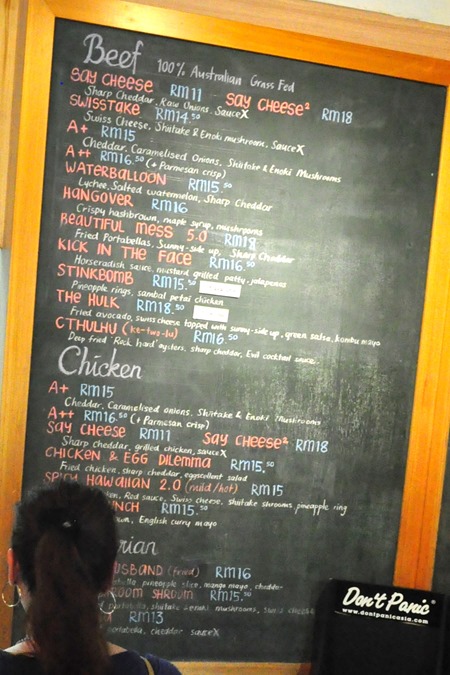 Beef 100% Australian Grass Fed
SAY CHEESE RM11 SAY CHEESE² RM18
Sharp Cheddar, Raw Onions, SauceX
SWISSTAKE RM14.50
Swiss Cheese, Shiitake & Enoki mushroom, SauceX
A+ RM15
Cheddar, Caramelised Onions, Shiitake & Enoki Mushrooms
A++ RM16.50 (+ Parmesan crisp)
WATERBALLOON RM15.50
Lychee, Salted watermelon, Sharp Cheddar
HANGOVER RM16
Crispy hashbrown, maple syrup, mushrooms
BEAUTIFUL MESS 5.0 RM18
Fried Portabellas, Sunny-side up, Sharp Cheddar
KICK IN THE FACE RM16.50
Horseradish sauce, mustard grilled patty, jalapenos
STINKBOMB RM15.50
Pineapple rings, sambal petai chicken
THE HULK RM18.50
Fried avocado, swiss cheese topped with sunny-side up, green salsa, kombu mayo
CTHULHU (ke-two-lu) RM16.50
Deep fried "Rock hard" oysters, sharp cheddar, Evil cocktail sauce
Chicken
A+ RM15
Cheddar, Caramelised onions, Shiitake & Enoki Mushrooms
A++ RM16.50 (+ Parmesan crisp)
SAY CHEESE RM11 SAY CHEESE² RM18
Sharp cheddar, grilled chicken, sauceX
CHICKEN & EGG DILEMMA RM15.50
Fried chicken, sharp cheddar, eggscellent salad
SPICY HAWAIIAN 2.0 (mild/hot) RM15
Red sauce, Swiss cheese, shiitake shrooms, pineapple ring
RM15.50
English curry mayo
(fried) RM16
pineapple slice, mango mayo, cheddar
SHROOM RM15.50
mushrooms, swiss cheese
RM13
cheddar sauceX
Don't Panic
www.dontpanicasia.com